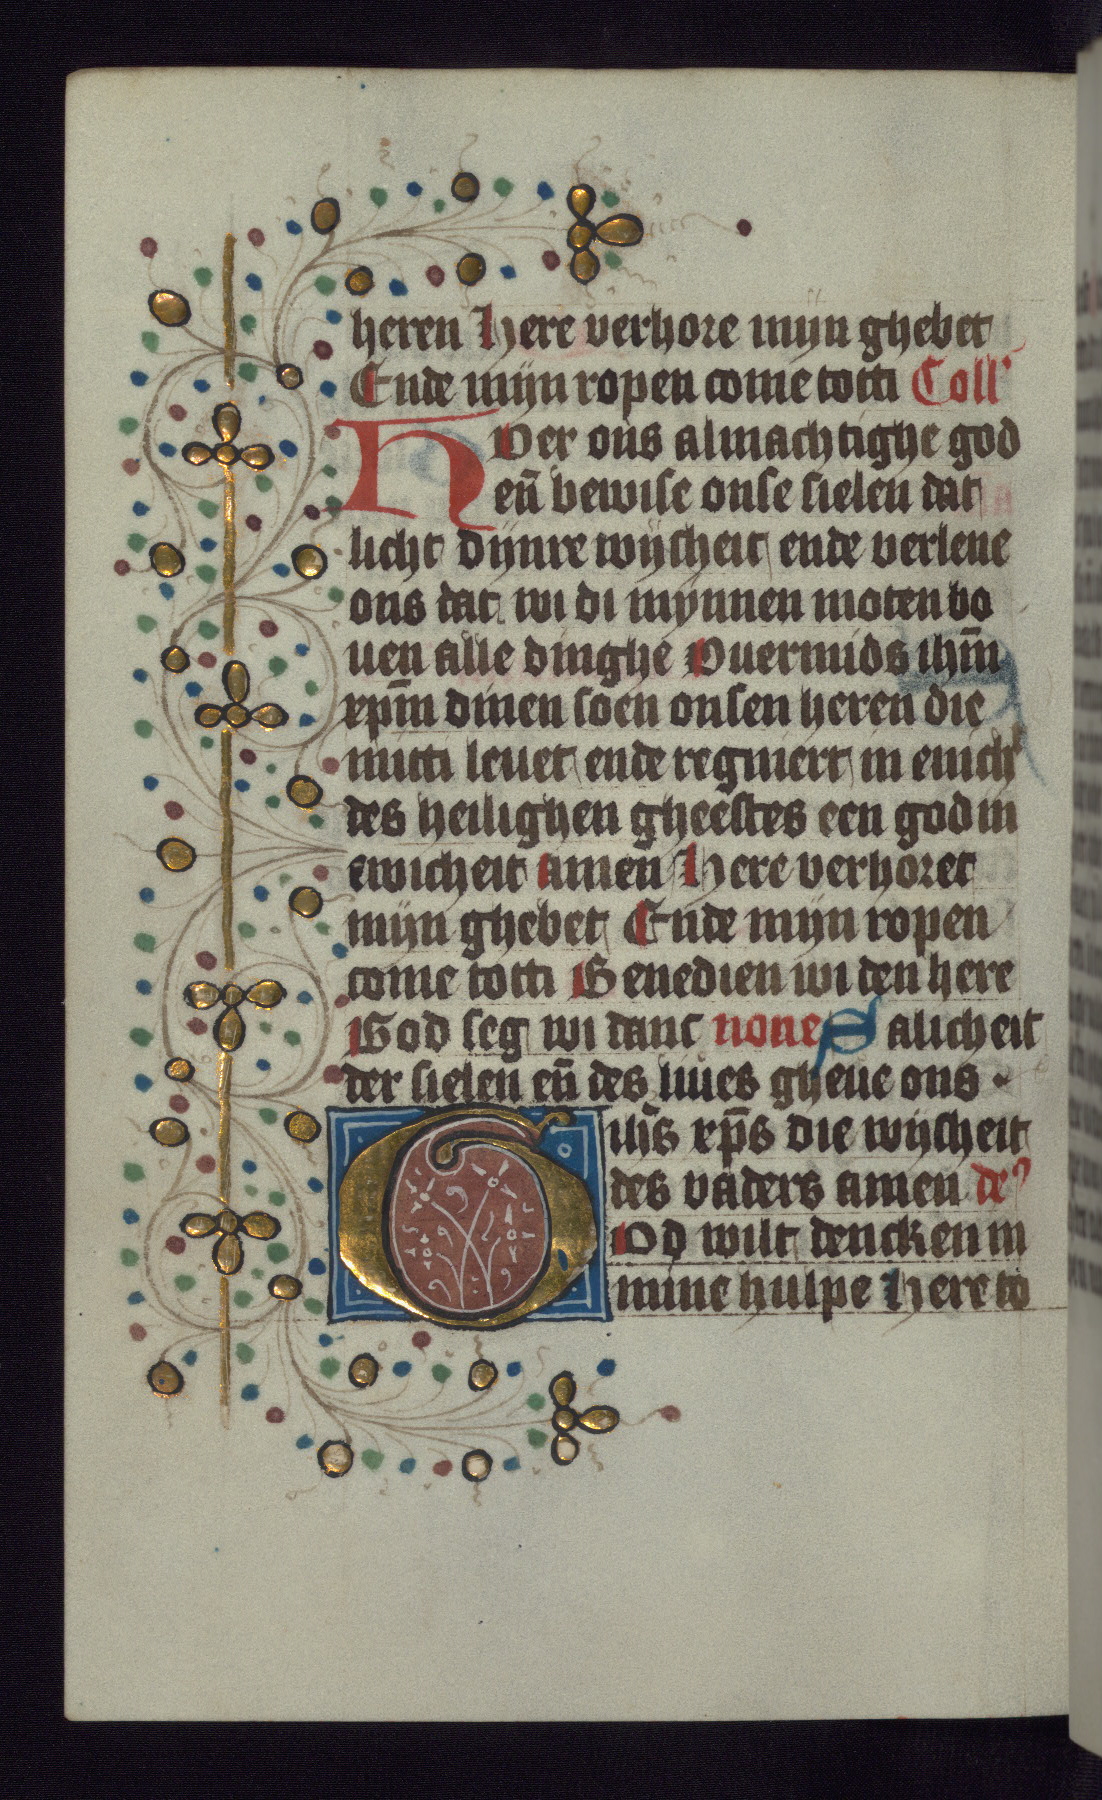 heren Here verhore mijn ghebet
Ende mijn ropen come totti Coll'
HEer ons almachtighe god
en̄ bewise onse sielen dat
licht dijnre wijsheit ende verlene
ons dat wi di mynnen moten bo
uen alle dinghe Ouermids ihm̄
xpm̄ dinen soen onsen heren die
mitti leuet ende regniert in enich
des heilighen gheestes een god in
ewicheit amen Here verhoret
mijn ghebet Ende mijn ropen
come totti Benedien wi den here
God seg wi danc none Salicheit
der sielen en̄ des liues gheue ons
ihs̄ xp̄s die wijsheit
des vaders amen de
Od wilt dencken in
mine hulpe Here to